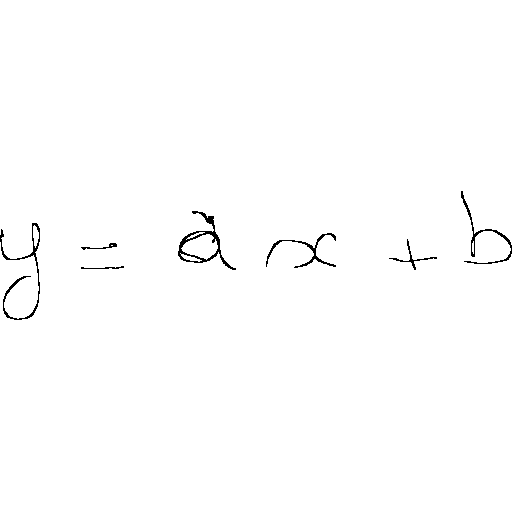 y = ax + b